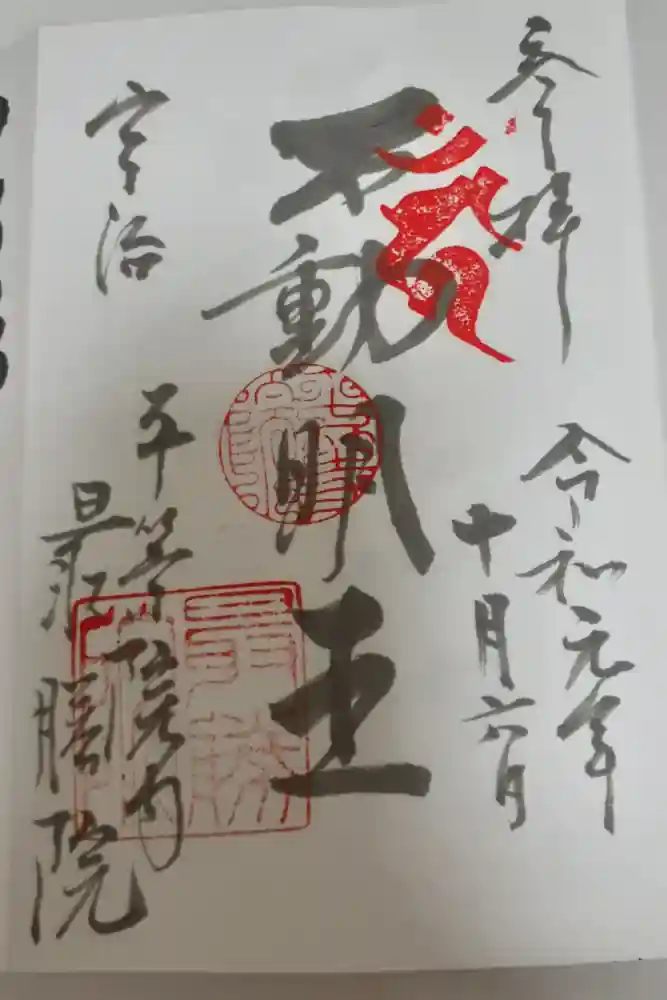 参拝
令和元年
十月六日
不動明王
宇治
平等院内
最勝院